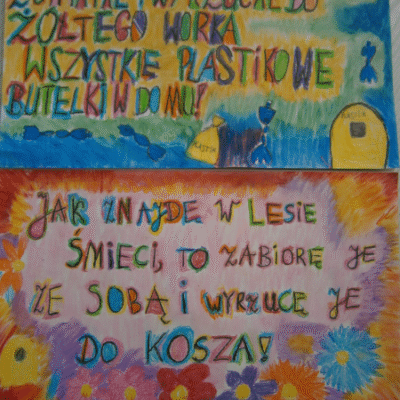 ŻÓŁTEGO WORKA
WSZYSTKIE PLASTIKOWE
BUTELKI W DOMU!
JAK ZNAJDĘ W LESIE
ŚMIECI, TO ZABIORĘ JE
ZE SOBĄ I WYRZUCĘ JE
DO KOSZA!